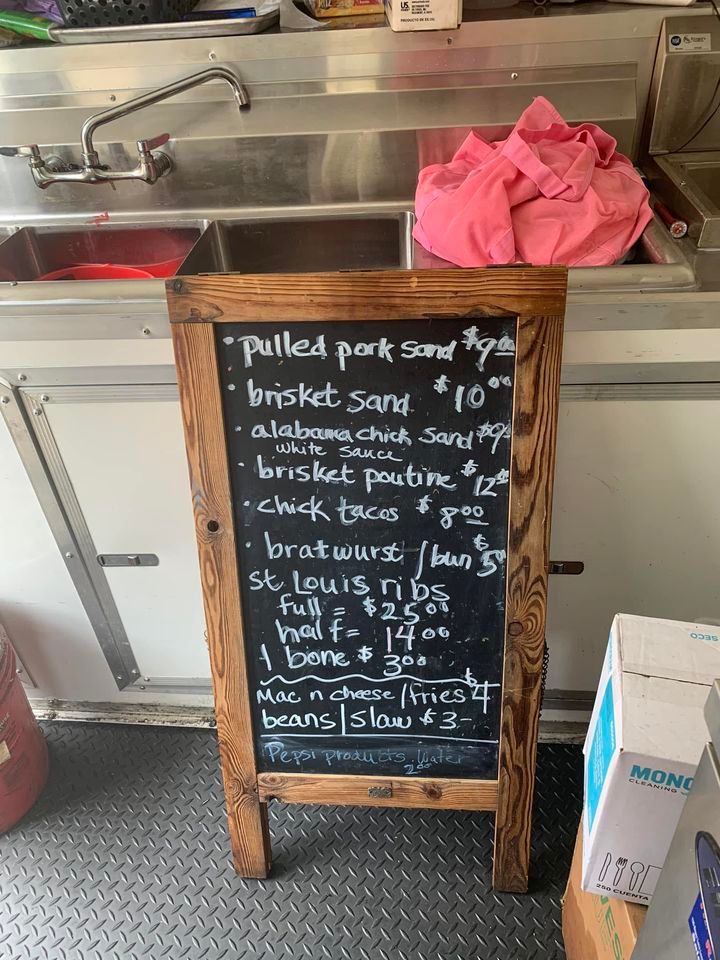 US
PRODUCT OF
NSF
• pulled pork sand $9.00
• brisket sand $10.00
• alabama chick sand $9
white sauce
• brisket poutine $12
• chick tacos $8.00
• bratwurst /bun $5
St Louis ribs
full = $25.00
half = 14.00
1 bone $3.00
Mac n cheese/fries $4
beans|slaw $3-
Pepsi products, water
2.00
SECO
MONO
CLEANING
250 CUENTA